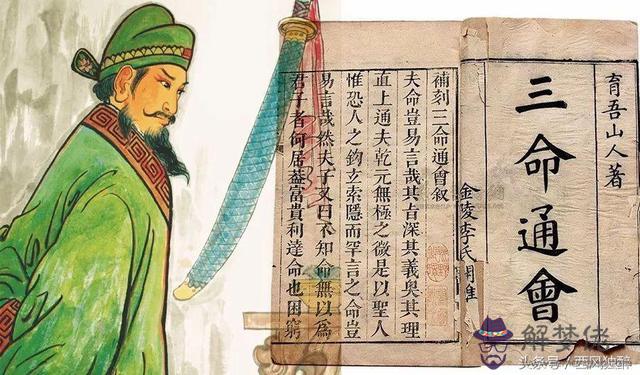 育吾山人著
三命通會
金陵李氏
補刻三命通會叙
夫命豈易言哉其旨深其義奥其理
直上通夫乾元無極之微是以聖人
惟恐人之鉤玄索隱而罕言之命豈
易言哉然夫子又曰不知命無以爲
君子者何居葢富貴利達命也困窮
解梦佬
头条号/西风独醉